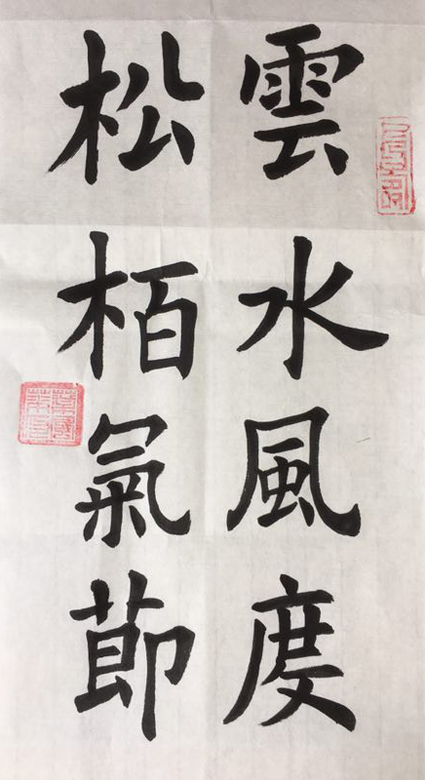 雲水風度
松栢氣節